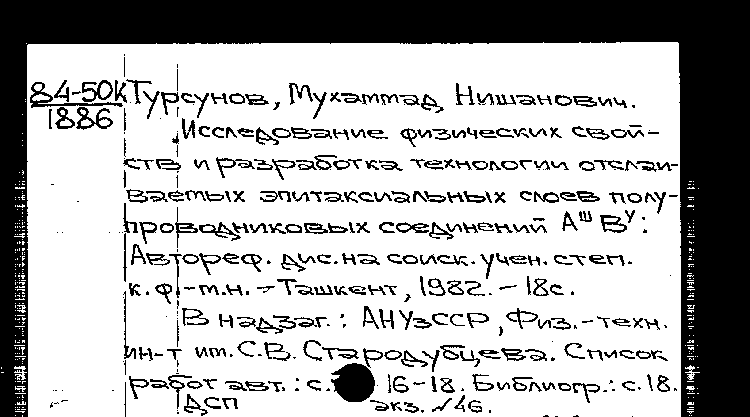 84-50К Турсунов, Мухаммад Нишанович.
1886
Исследование физических свой-
ств и разработка технологии отслаи-
ваемых эпитаксиальных слоев полу-
проводниковых соединений АᴵᴵᴵВⱽ:
Автореф. дис. на соиск. учен. степ.
к. ф.-м.н. - Ташкент, 1982. - 18с.
В надзаг.: АН УзССР, Физ.-техн.
ин-т им. С.В. Стародубцева. Список
работ авт.: с. 16-18. Библиогр.: с. 18.
ДСП экз. №46.